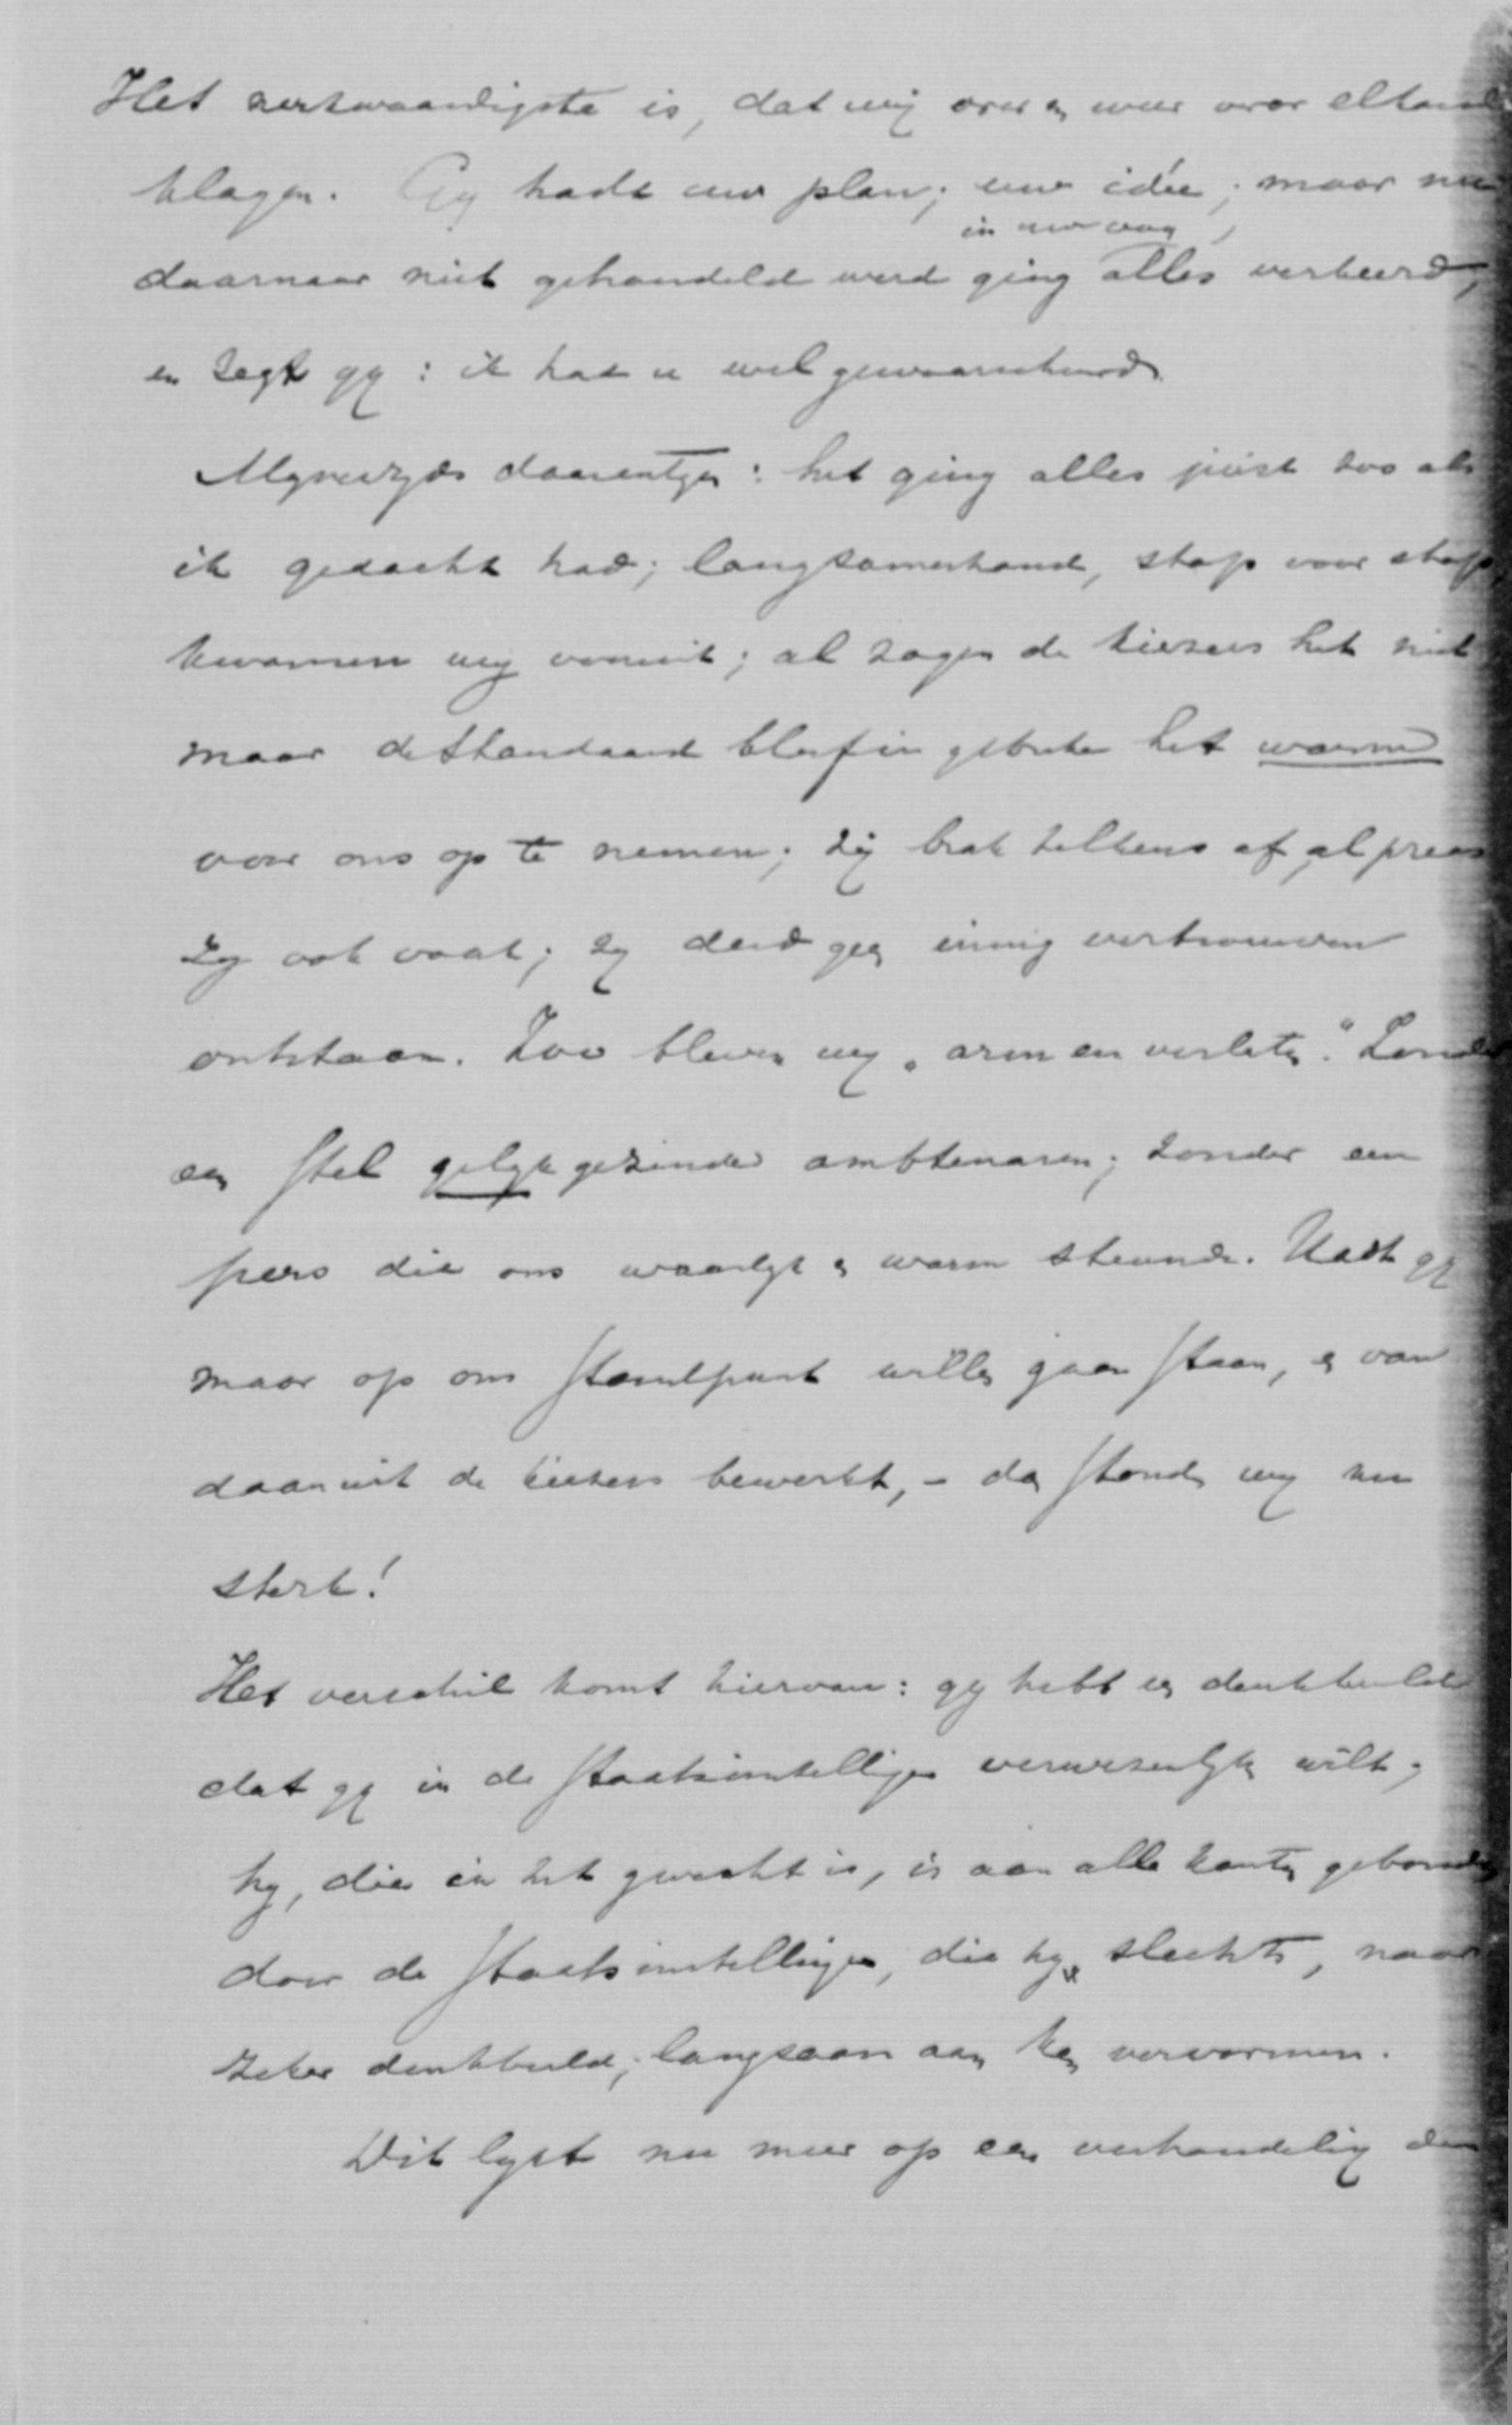 Het merkwaardigste is, dat wij over en weer over elkand
klagen. Gy hadt uw plan; uw idée; maar nu
in uw oog
daarnaar niet gehandeld werd ging alles verkeerd,
en zegt gy: ik had u wel gewaarschuwd.
Mynerzyds daarentegen: het ging alles juist zoo als
ik gedacht had; langzamerhand, stap voor stap
kwamen wy vooruit; al zagen de kiezers het niet
maar de Standaard bleef in gebreke het warm
voor ons op te nemen; zij brak telkens af, al prees
zy ook vaak; zy deed geen innig vertrouwen
ontstaan. Zoo bleven wy „arm en verlaten." Zonder
een stel gelyk gezinde ambtenaren; zonder een
pers die ons waarlyk en warm steunde. Hadt gy
maar op ons standpunt willen gaan staan, en van
daaruit de kiezers bewerkt, - dan stonden wy nu
sterk!
Het verschil komt hiervan: gy hebt een denkbeeld
dat gy in de staatsinstellingen verwezenlyken wilt;
hy, die in het gewecht is, is aan alle kanten gebonden
door de staatsinstellingen, die hy slechts, naar
zeker denkbeeld, langzaam aan kan vervormen.
Dit lykt nu meer op een verhandeling dan